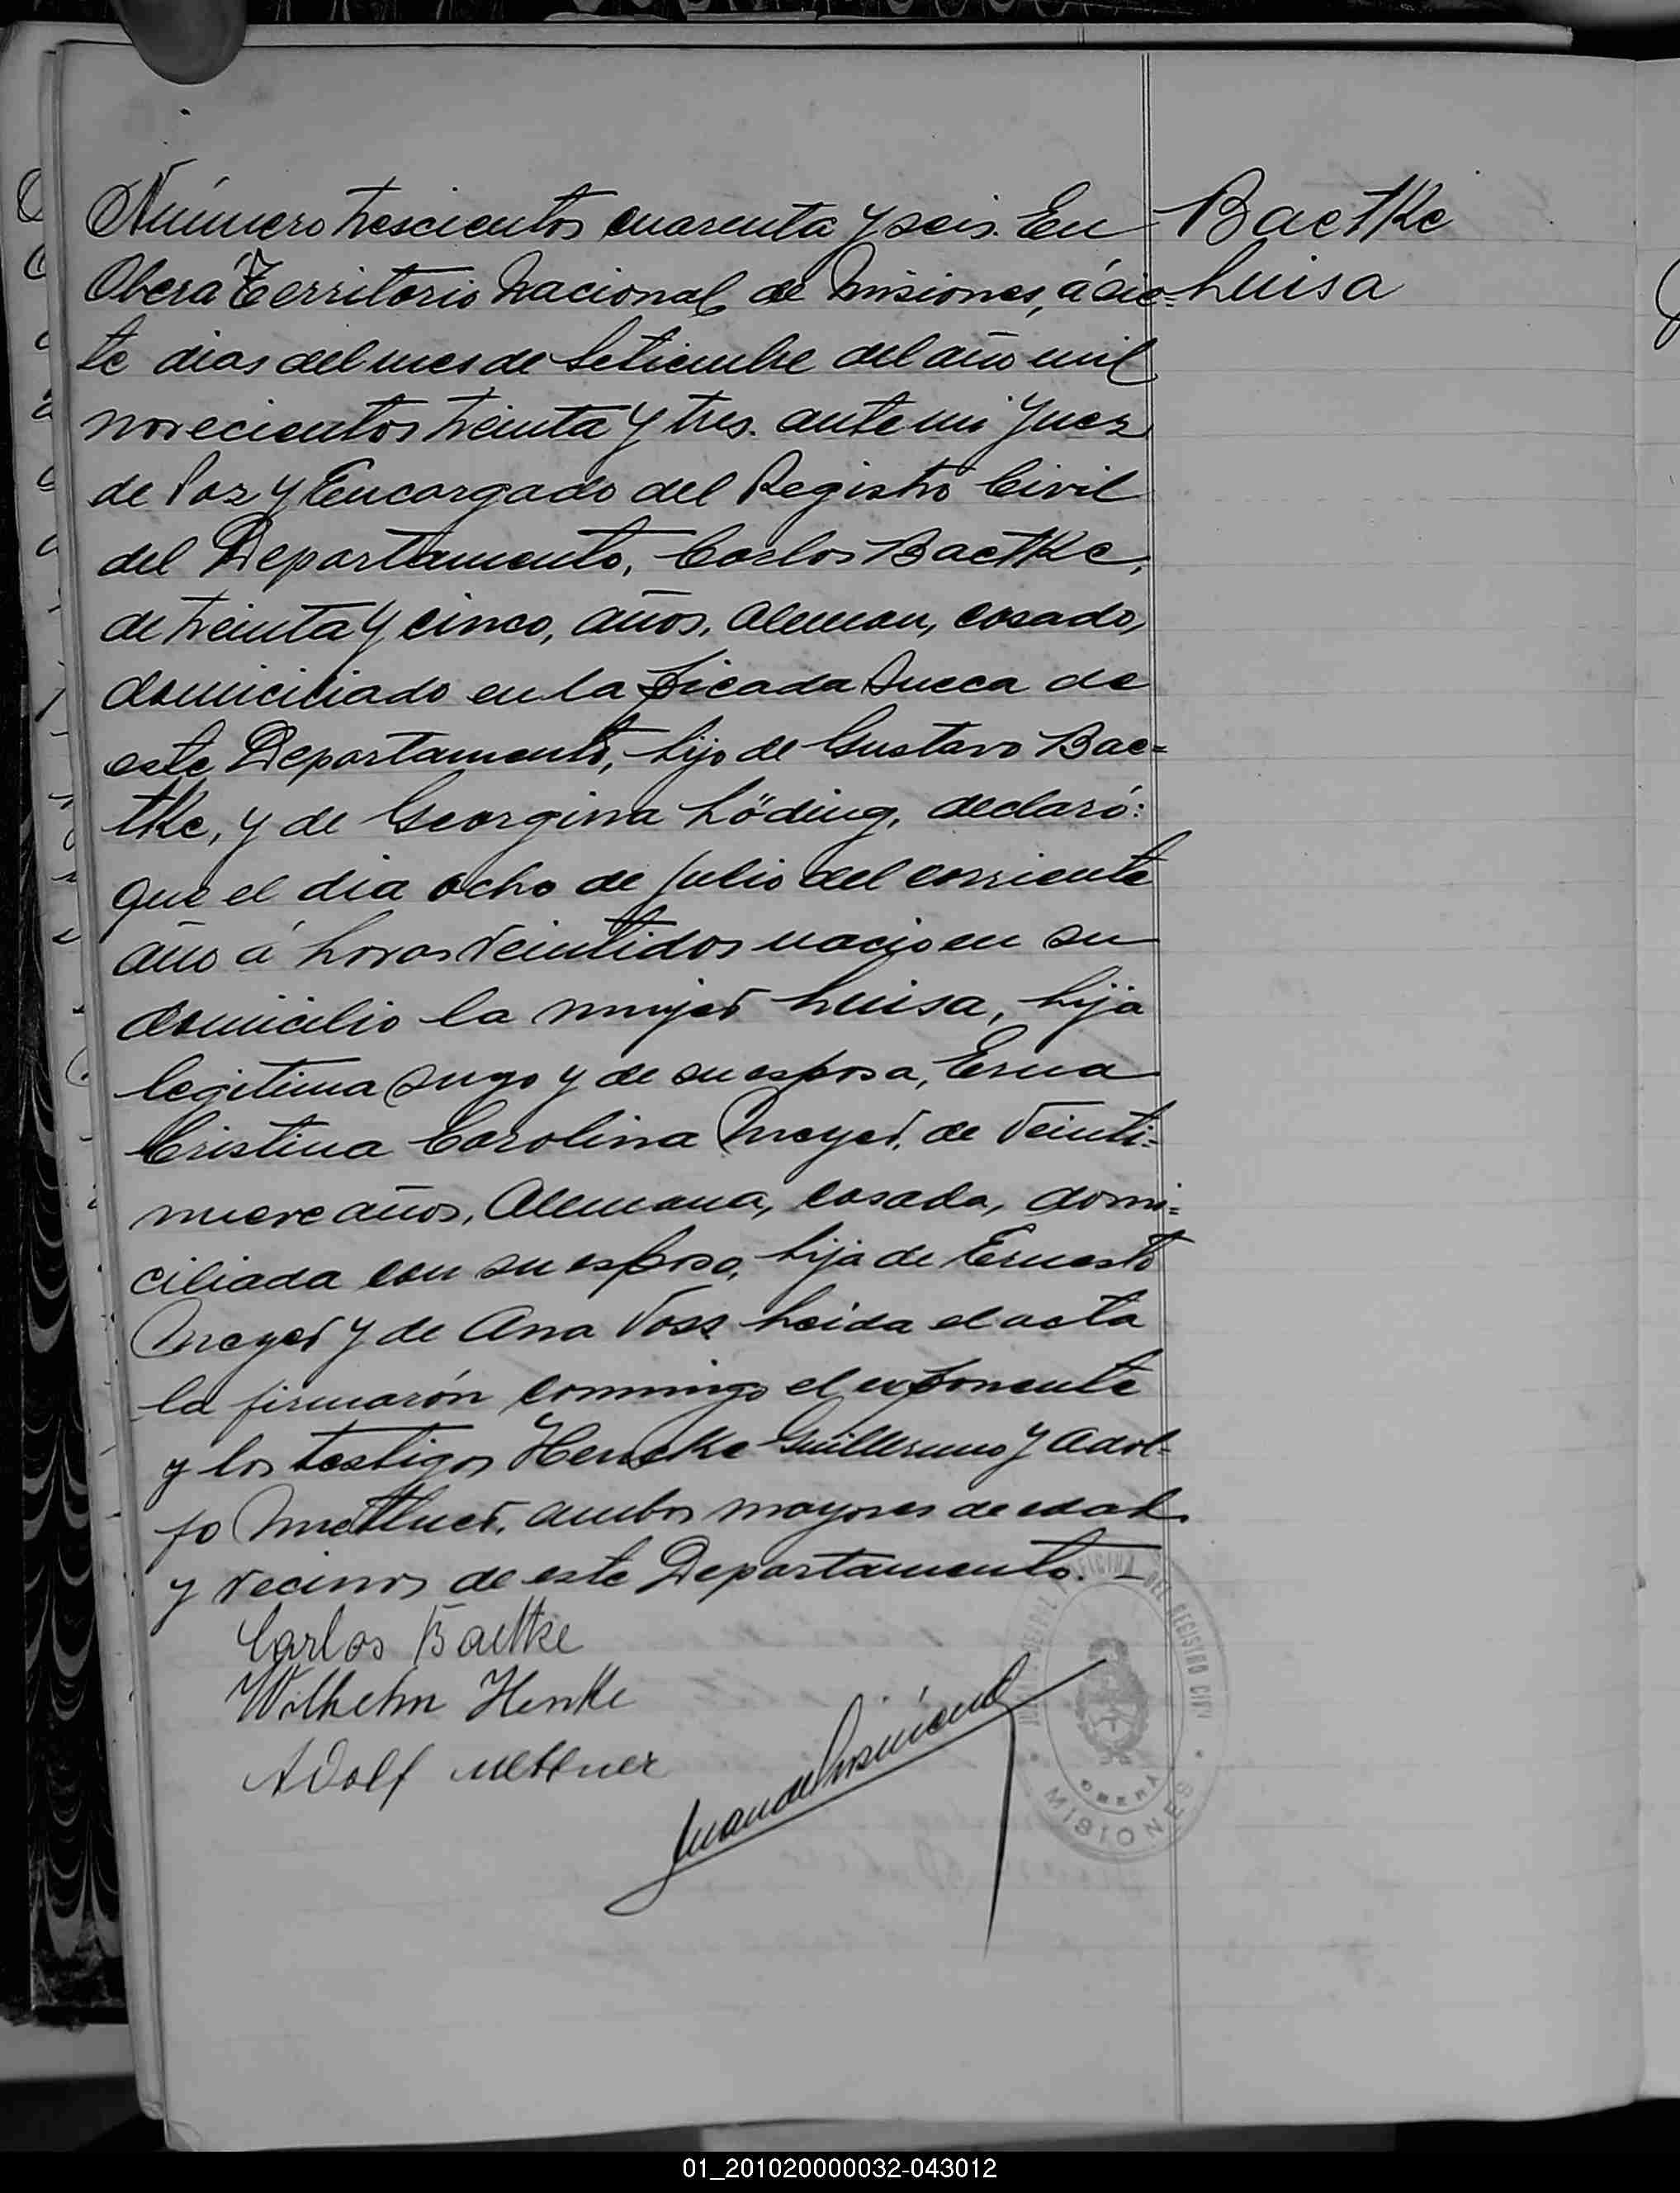 Número trescientos cuarenta y seis. En
Baetke
Oberá Territorio Nacional de Misiones, á sie=
Luisa
te dias del mes de Setiembre del año mil
novecientos treinta y tres. ante mi Juez
de Paz y Encargado del Registro Civil
del Departamento, Carlos Baetke,
de treinta y cinco, años, Aleman, casado,
domiciliado en la picada Sueca de
este Departamento, hijo de Gustavo Bae=
tke, y de Georgina Löding, declaró:
que el dia ocho de Julio del corriente
año á horas veintidos nacio en su
domicilio la mujer Luisa, hija
legitima suyo y de su esposa, Erna
Cristina Carolina Meyer, de veinti=
nueve años, Alemana, casada, domi=
ciliada con su esposo, hija de Ernesto
Meyer y de Ana Voss Leida el acta
la firmarón conmigo el exponente
y los testigos Hencke Guillermo y Adol-
fo Mettner, ambos mayores de edad
y vecinos de este Departamento. —
Carlos Baetke
Wilhelm Henke
Adolf Mettner
DEL REGISTRO CIVIL
OBERÁ
MISIONES
01_201020000032-043012